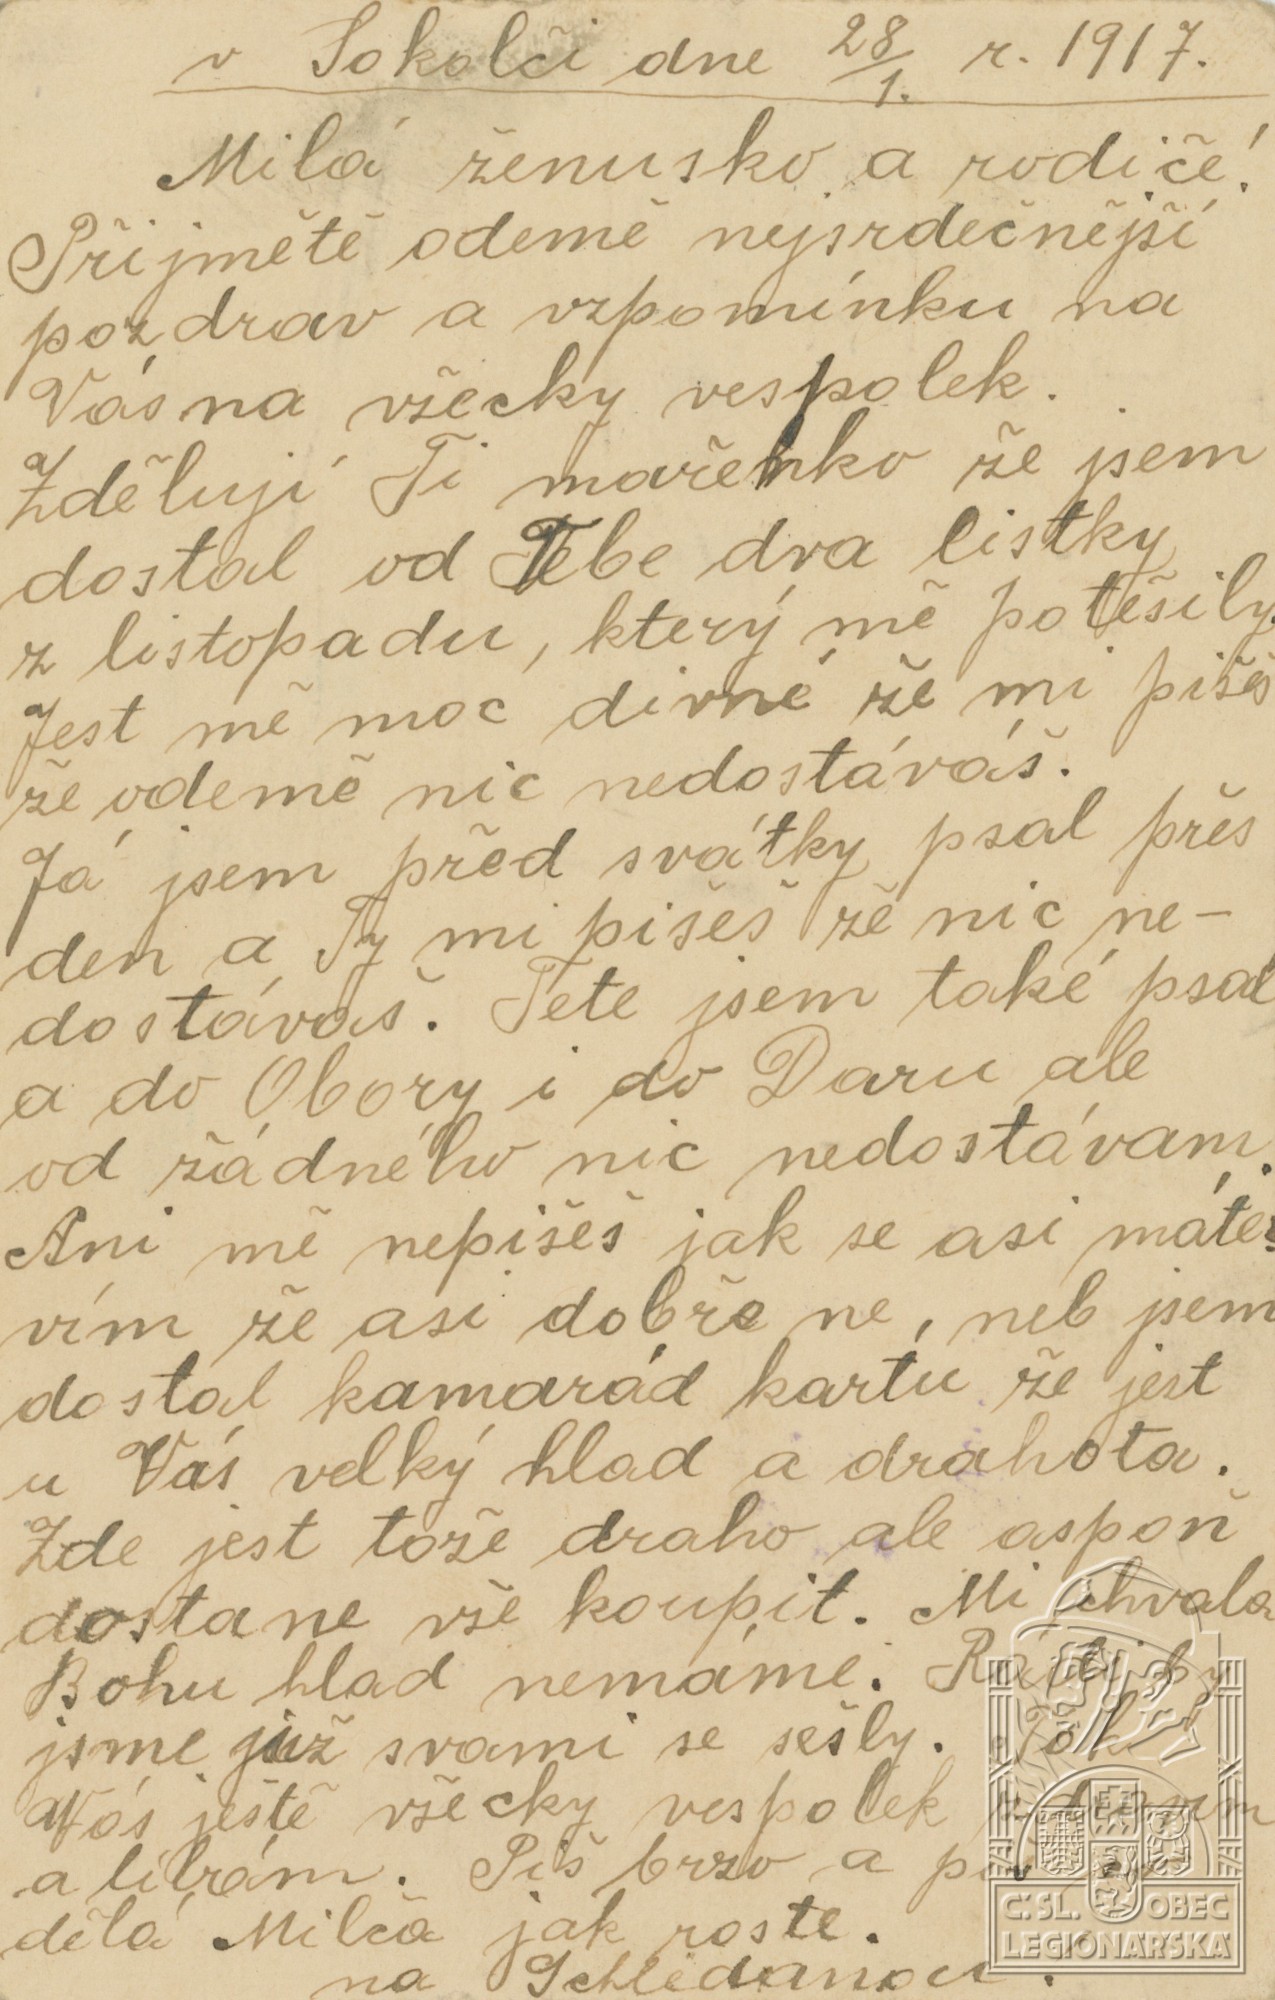 v Sokolči dne 28/1. r. 1917.
Milá ženusko a rodiče!
Přijmětě odemě nejsrdečnějśí
pozdrav a vzpomínku na
Vás na všecky vespolek.
Zdělují Ti mařenko že jsem
dostal od Tebe dva listky
z listopadu, který mě potěšily.
Jest mě moc divné že mi pišěs
že odemě nic nedostáváš.
Já jsem před svátky psal přes
den a Ty mi pišeš žě nic ne-
dostávaš. Tete jsem také psal
a do Obory i do Daru ale
od žádného nic nedostávam.
Ani mě nepišěs jak se asi máte?
vím že asi dobře ne, neb jsem
dostal kamarád kartu že jest
u Vás velký hlad a drahota.
Zde jest tože draho ale aspoň
dostane vše koupit. Mi chvala
Bohu hlad nemáme. Rádi by
jsme již svami se sešly. Tak
Vás ještě všecky vespolek zdravim
a líbám. Piš brzo a piš co
dělá Milča jak roste.
na Schledanou.
Č:SL. OBEC
LEGIONÁŘSKÁ